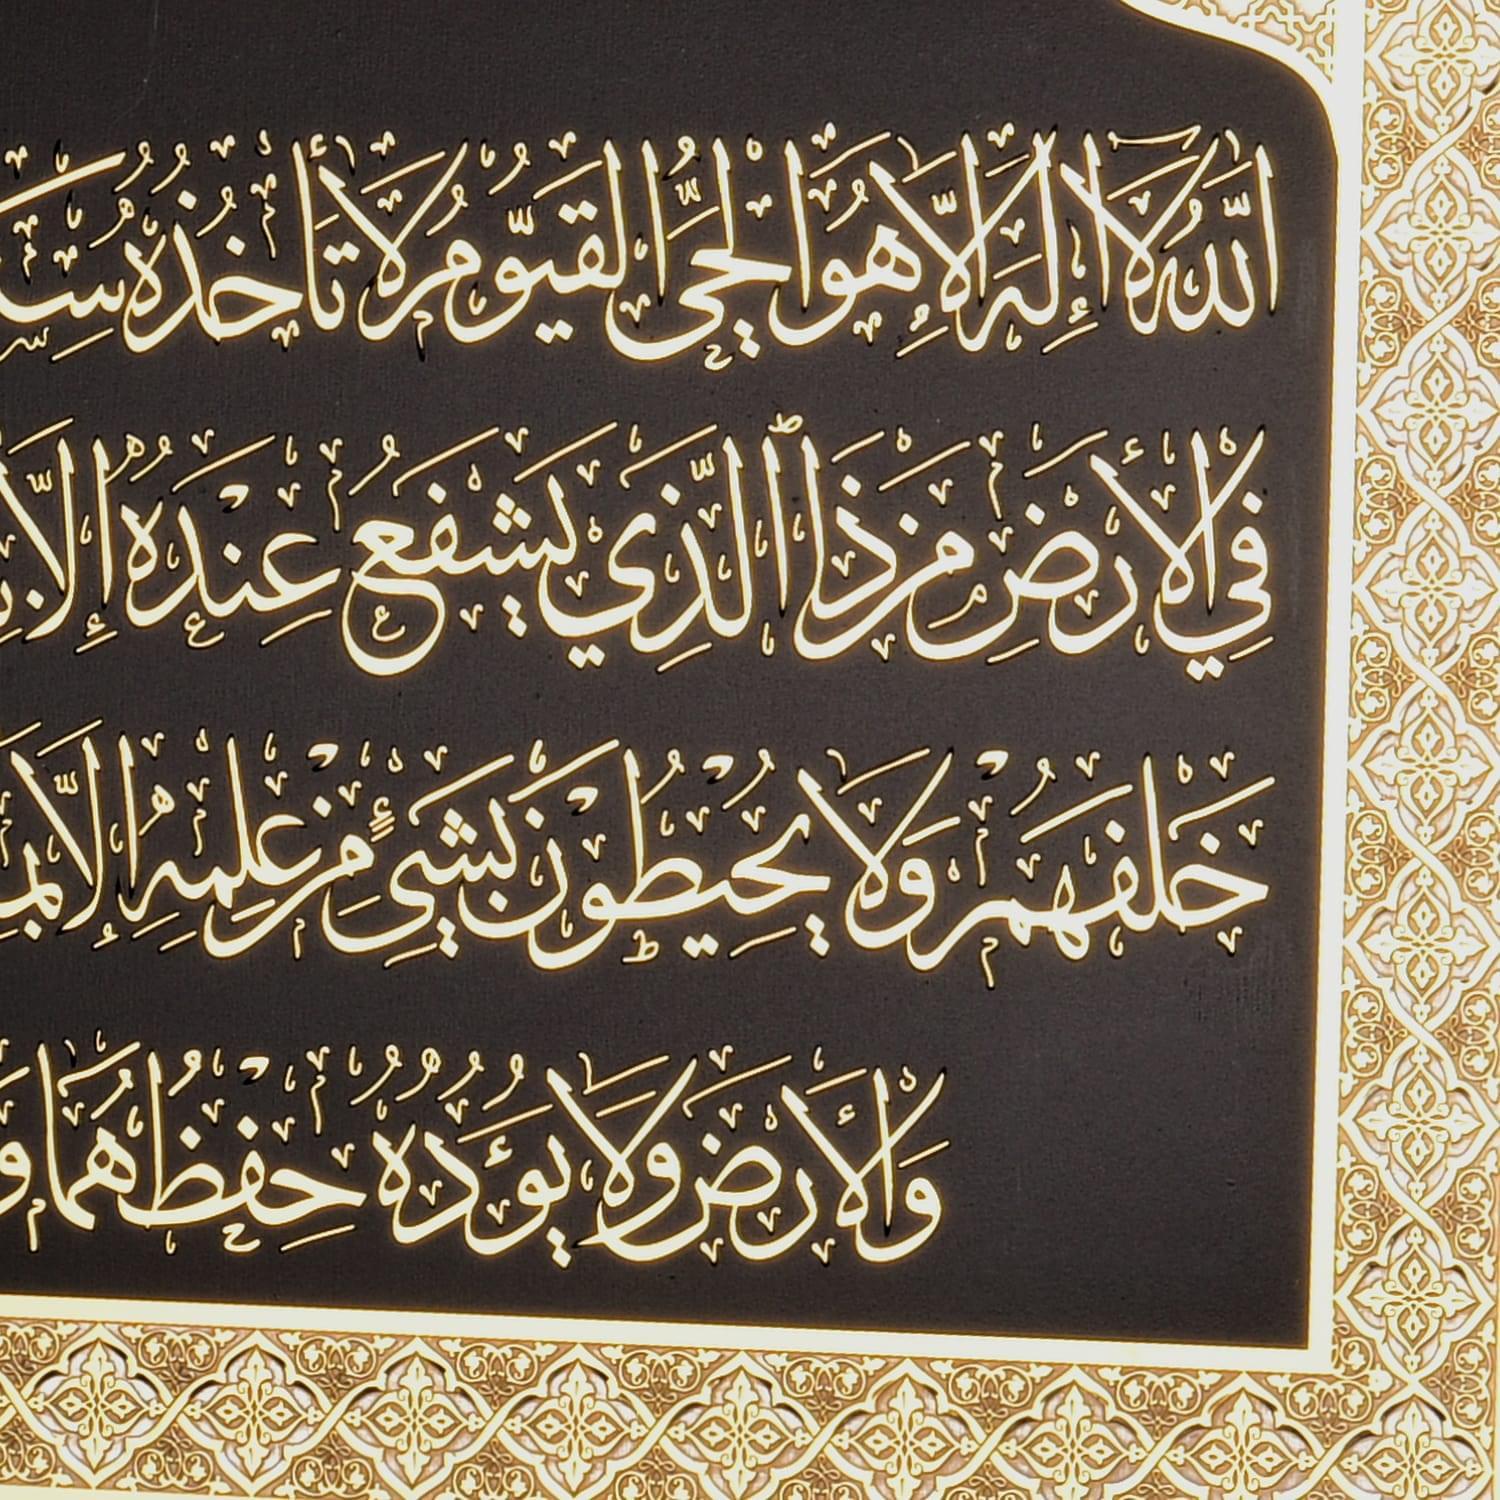 اللّٰهُ لَا إِلٰهَ إِلَّا هُوَ الْحَيُّ الْقَيُّومُ لَا تَأْخُذُهُ
فِي الْأَرْضِ مَنْ ذَا الَّذِي يَشْفَعُ عِنْدَهُ إِلَّا
خَلْفَهُمْ وَلَا يُحِيطُونَ بِشَيْءٍ مِنْ عِلْمِهِ إِلَّا
وَالْأَرْضَ وَلَا يَؤُدُهُ حِفْظُهُمَا